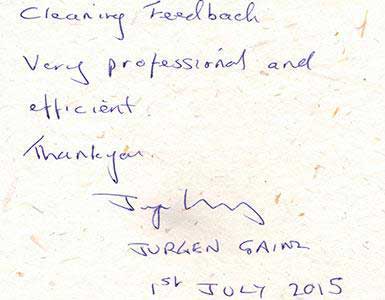 Cleaning Feedback
Very professional and
efficient.
Thankyou.
JURGEN
1st JULY 2015